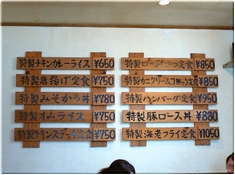 特製チキンカレーライス ¥650
特製唐揚げ定食 ¥750
特製みそかつ丼 ¥780
特製オムライス ¥750
特製チキンステーキ定食 ¥750
特製 定食 ¥850
特製カニクリームコロッケ定食 ¥850
特製ハンバーグ定食 ¥950
特製豚ロース丼 ¥880
特製海老フライ定食 ¥1050